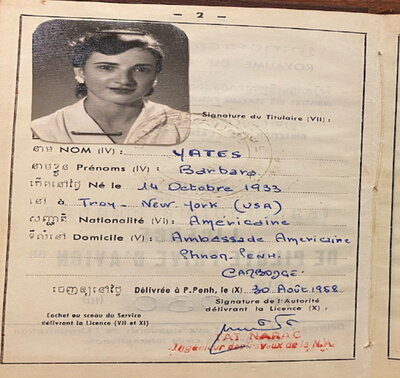 — 2 —
Signature du Titulaire (VII) :
នាម NOM (IV) : YATES
នាមខ្លួន Prénoms (IV) : Barbara
កើតនៅថ្ងៃ Né le 14 Octobre 1933
នៅ à Troy - New York (USA)
សញ្ជាតិ Nationalité (VI) : Américaine
ទីលំនៅ Domicile (V) : Ambassade Américaine
Phnom. Penh.
CAMBODGE.
ចេញឲ្យនៅថ្ងៃ Délivrée à P.Penh, le (X) 30 Août 1958
Signature de l'Autorité
délivrant la Licence (X) :
Cachet ou sceau du Service
délivrant la Licence (VII et XI)
TAT NARAC
Ingénieur des Travaux de la N.A.